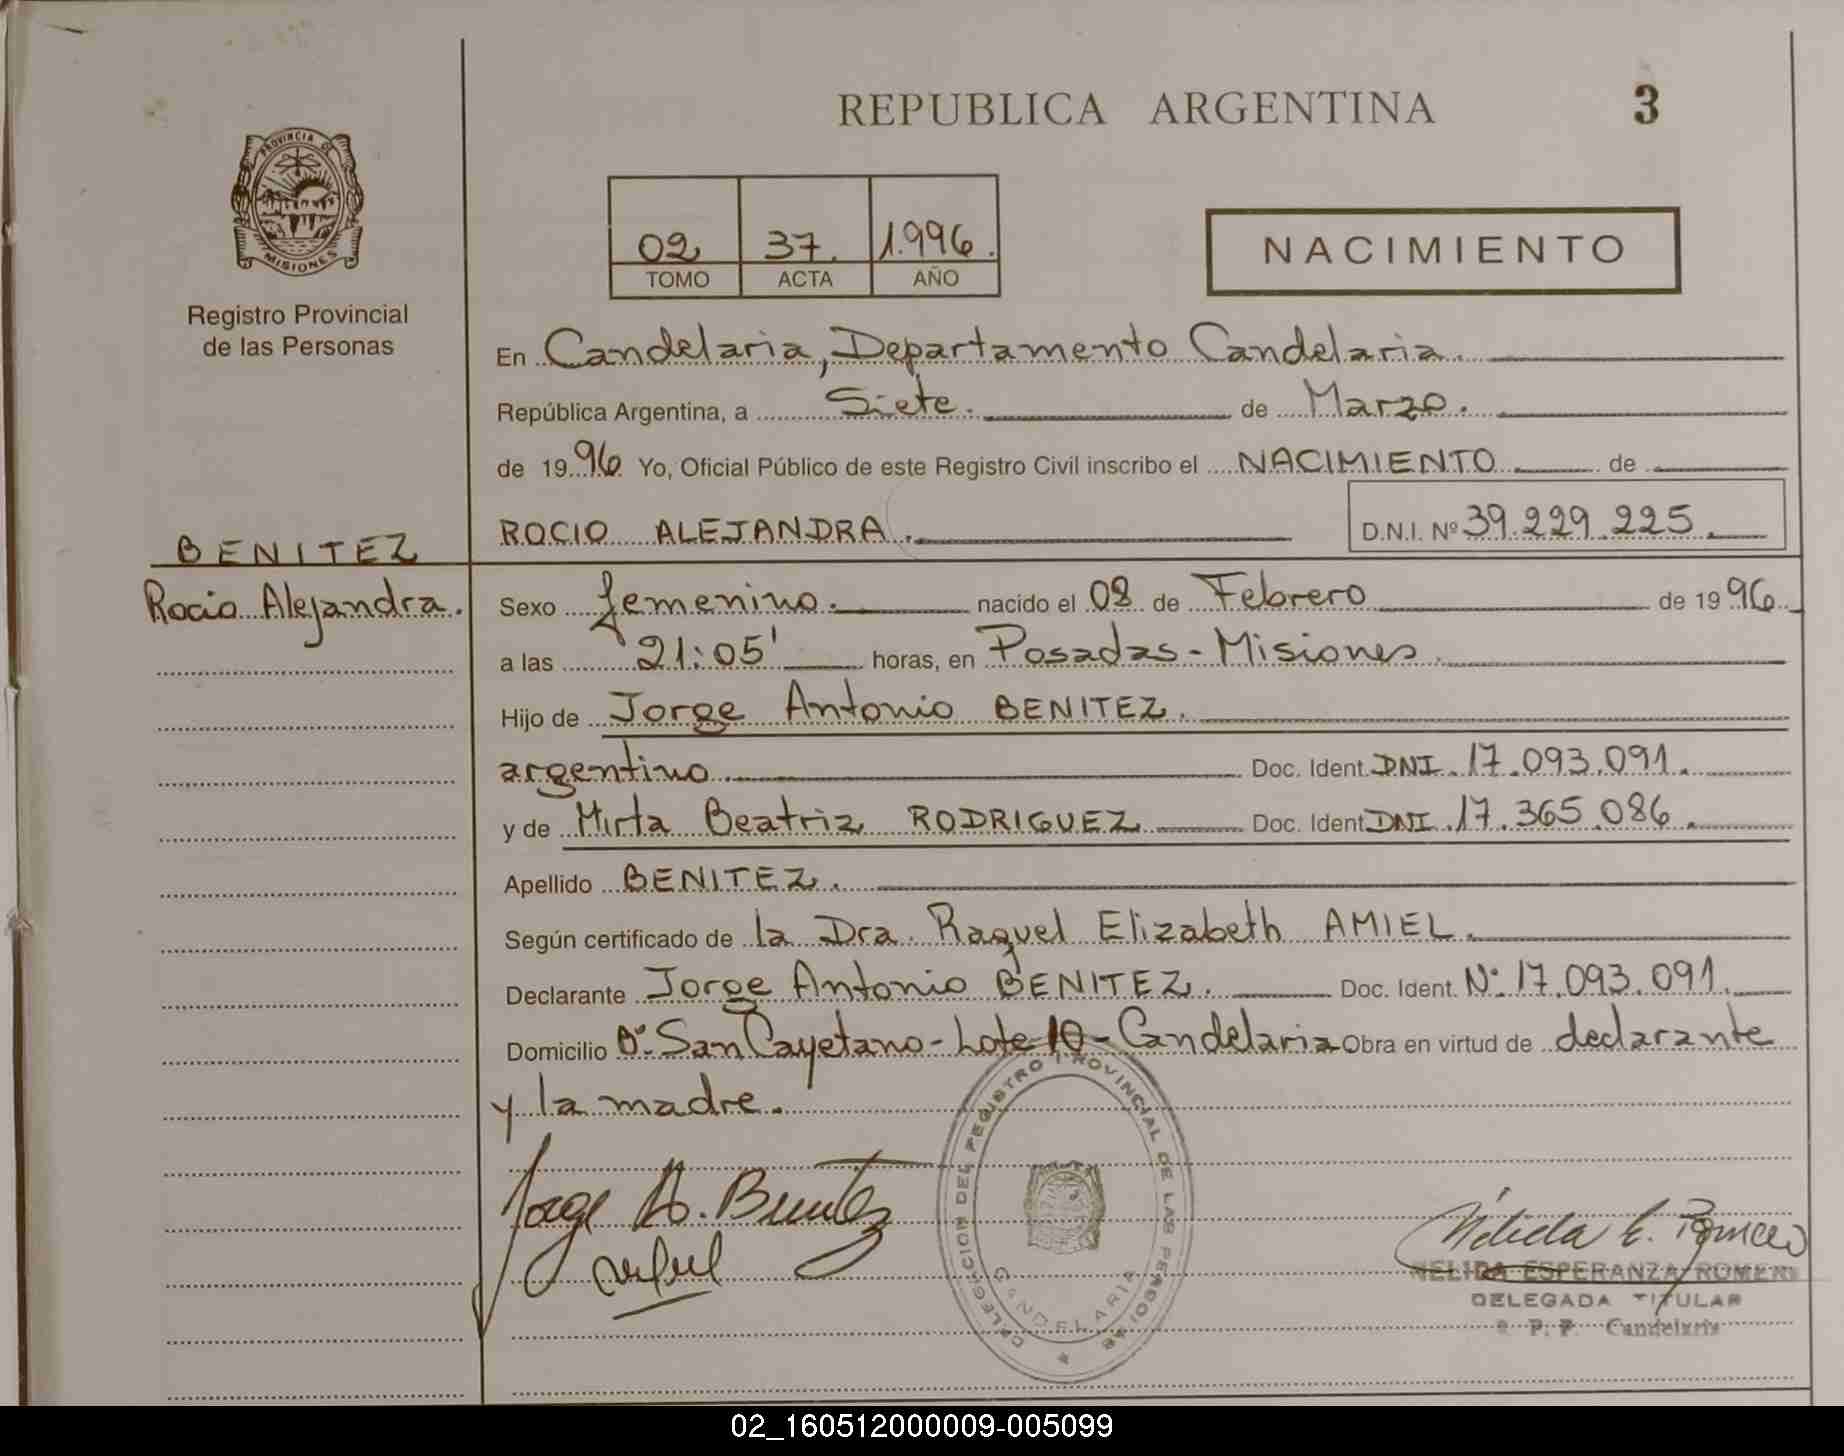 REPUBLICA ARGENTINA 3
PROVINCIA DE
MISIONES
Registro Provincial
de las Personas
02 37. 1.996.
TOMO ACTA AÑO
NACIMIENTO
En Candelaria, Departamento Candelaria.
República Argentina, a Siete. de Marzo.
de 1996 Yo, Oficial Público de este Registro Civil inscribo el NACIMIENTO de
ROCIO ALEJANDRA. D.N.I. Nº 39.229.225.
BENITEZ
Rocio Alejandra.
Sexo femenino. nacido el 08 de Febrero de 1996
a las 21:05' horas, en Posadas - Misiones.
Hijo de Jorge Antonio BENITEZ.
argentino. Doc. Ident. DNI. 17.093.091.
y de Mirta Beatriz RODRIGUEZ Doc. Ident. DNI. 17.365.086.
Apellido BENITEZ.
Según certificado de la Dra. Raquel Elizabeth AMIEL.
Declarante Jorge Antonio BENITEZ. Doc. Ident. Nº 17.093.091.
Domicilio Bº San Cayetano - Lote 10 - Candelaria Obra en virtud de declarante
y la madre.
DELEGACION DEL REGISTRO PROVINCIAL DE LAS PERSONAS
CANDELARIA
Jorge A. Benitez
Nélida E. Romero
NELIDA ESPERANZA ROMERO
DELEGADA TITULAR
R. P. P. Candelaria
02_160512000009-005099